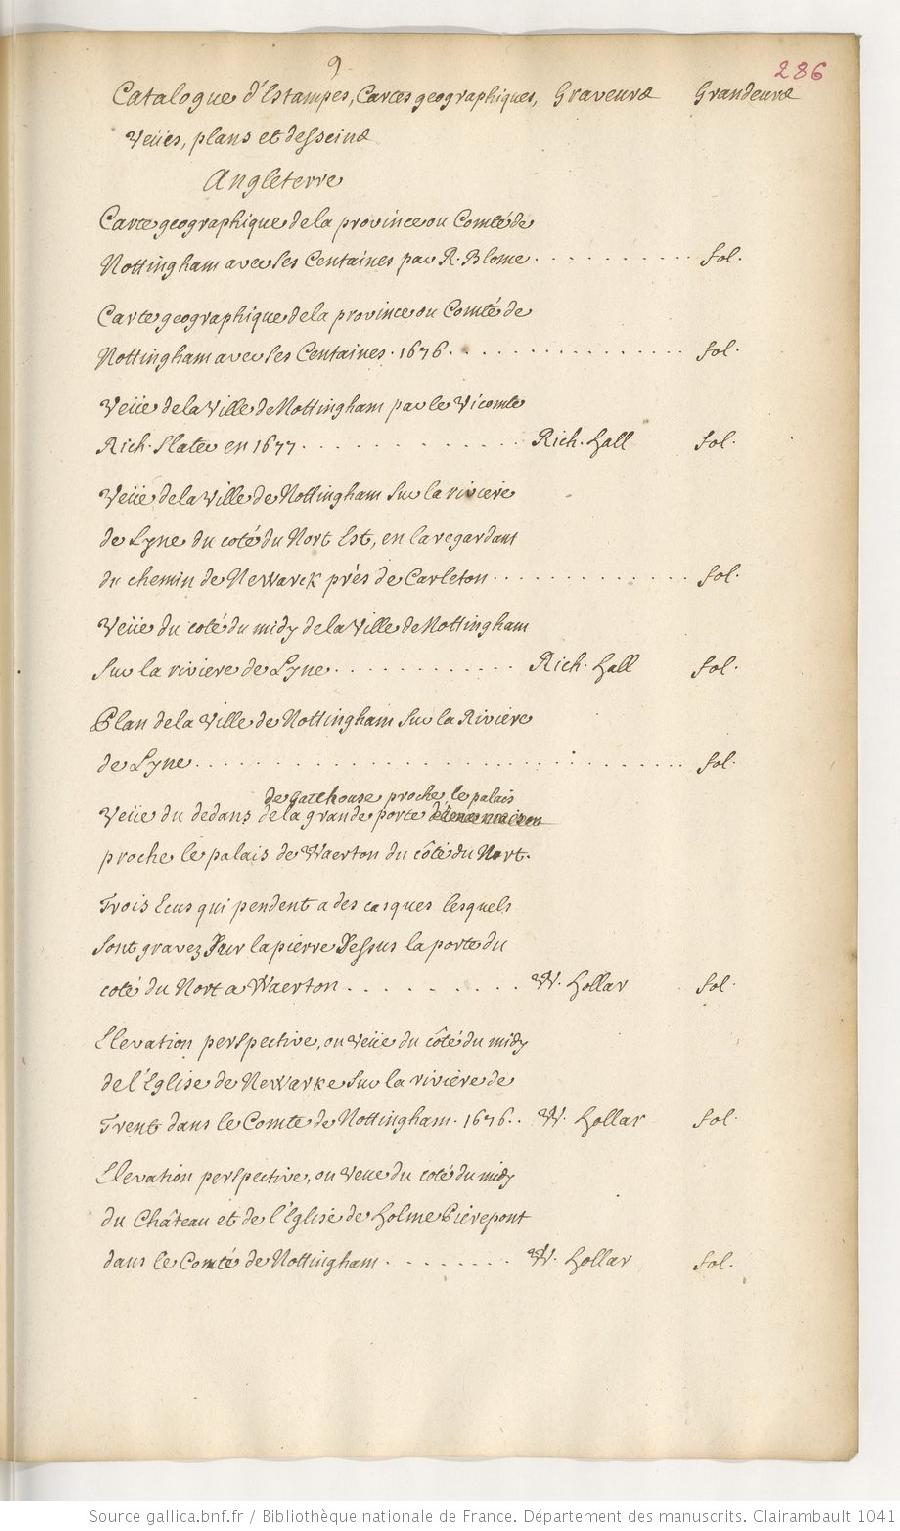 9
286
Catalogue d'Estampes, Cartes geographiques, Graveurs Grandeurs
Veües, plans et desseins
Angleterre
Carte geographique de la province ou Comté de
Nottingham avec ses Centaines par R. Blome . . . . . . . . . . fol.
Carte geographique de la province ou Comté de
Nottingham avec ses Centaines. 1676. . . . . . . . . . . . . . . fol.
Veüe de la Ville de Nottingham par le Vicomte
Rich. Slater en 1677 . . . . . . . . . . . . Rich. Hall fol.
Veüe de la Ville de Nottingham sur la riviere
de Lyne du coté du Nort Est, en la regardant
du chemin de Newarck prés de Carleton . . . . . . . . . . . . . fol.
Veüe du coté du midy de la Ville de Nottingham
sur la riviere de Lyne . . . . . . . . . . . . Rich. Hall fol.
Plan de la Ville de Nottingham sur la Riviere
de Lyne . . . . . . . . . . . . . . . . . . . . . . . . . . . . . fol.
de Gatehouse proche le palais
Veüe du dedans de la grande porte
proche le palais de Waerton du côté du Nort.
Trois Ecus qui pendent a des casques lesquels
sont gravez sur la pierre dessus la porte du
coté du Nort a Waerton . . . . . . . . . . W. Hollar fol.
Elevation perspective, ou veüe du côté du midy
de l'Eglise de Newarke sur la riviere de
Trent dans le Comté de Nottingham. 1676. . W. Hollar fol.
Elevation perspective, ou veue du coté du midy
du Château et de l'Eglise de Holme Pierepont
dans le Comté de Nottingham . . . . . . . . W. Hollar fol.
Source gallica.bnf.fr / Bibliothèque nationale de France. Département des manuscrits. Clairambault 1041